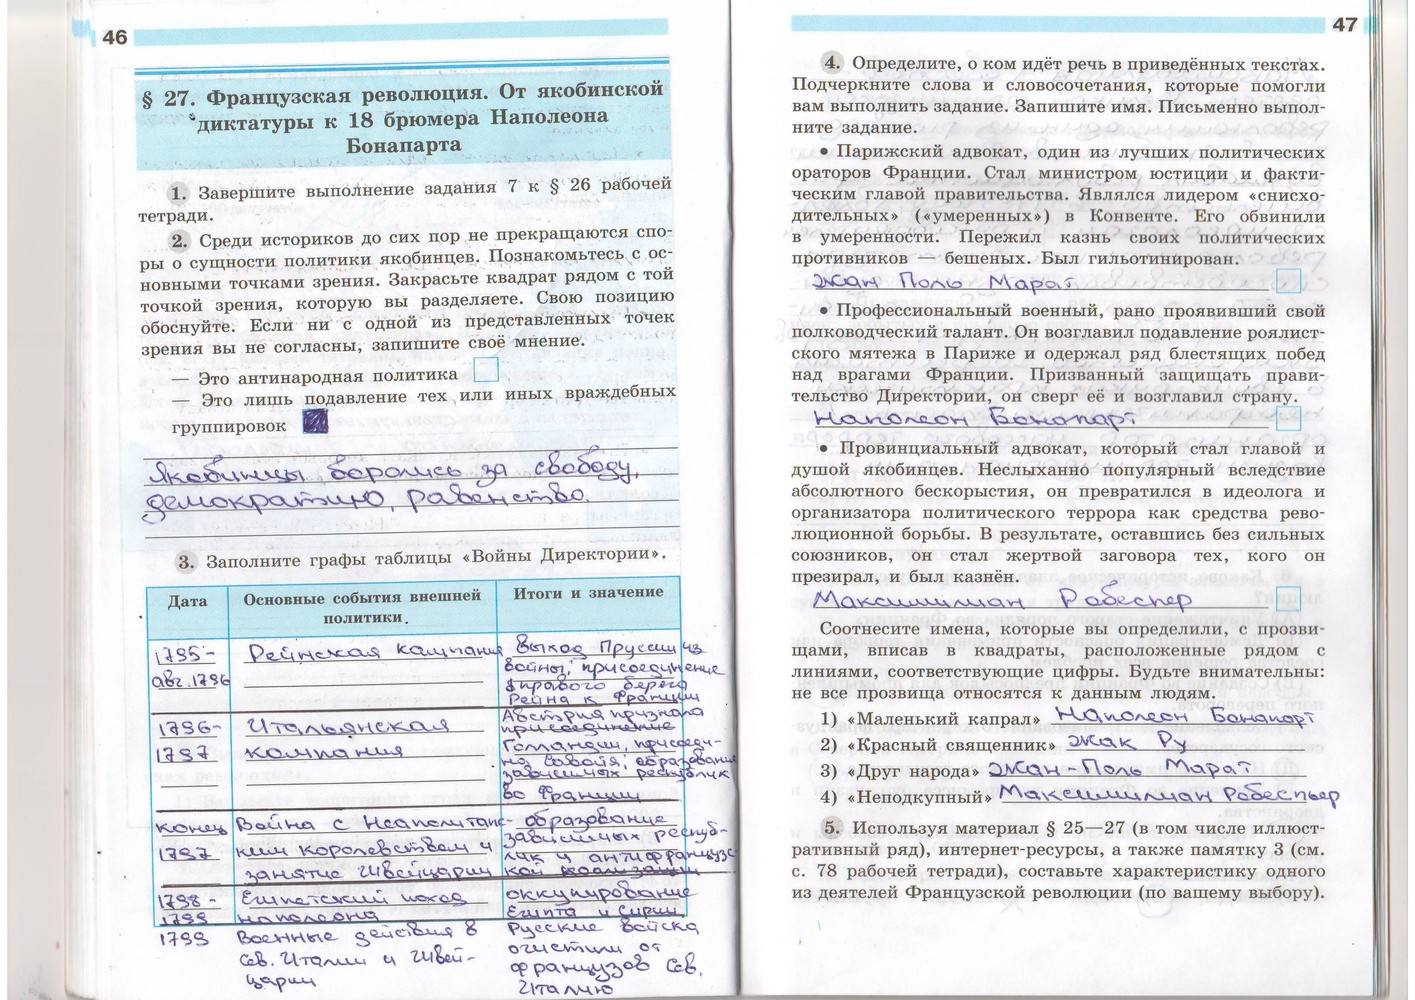 46
§ 27. Французская революция. От якобинской
диктатуры к 18 брюмера Наполеона
Бонапарта
1. Завершите выполнение задания 7 к § 26 рабочей
тетради.
2. Среди историков до сих пор не прекращаются спо-
ры о сущности политики якобинцев. Познакомьтесь с ос-
новными точками зрения. Закрасьте квадрат рядом с той
точкой зрения, которую вы разделяете. Свою позицию
обоснуйте. Если ни с одной из представленных точек
зрения вы не согласны, запишите своё мнение.
— Это антинародная политика
— Это лишь подавление тех или иных враждебных
группировок
Якобинцы боролись за свободу,
демократию, равенство.
3. Заполните графы таблицы «Войны Директории».
Дата
Основные события внешней
политики.
Итоги и значение
1795-
авг. 1796
Рейнская кампания
Выход Пруссии из
войны, присоединение
правого берега
Рейна к Франции
1796-
1797
Итальянская
компания
Австрия признала
присоединение
Голландии, присоеди-
на Савойя, образование
зависимых республик
во Франции
конец
1797
Война с Неаполитанс-
ким королевством и
занятие Швейцарии
образование
зависимых респуб-
лик и антифранцузс-
кой коализации
1798-
1799
Египетский поход
наполеона
оккупирование
Египта и Сирии
1799
Военные действия в
Сев. Италии и Швей-
царии
Русские войска
очистили от
французов Сев.
Италию
47
4. Определите, о ком идёт речь в приведённых текстах.
Подчеркните слова и словосочетания, которые помогли
вам выполнить задание. Запишите имя. Письменно выпол-
ните задание.
• Парижский адвокат, один из лучших политических
ораторов Франции. Стал министром юстиции и факти-
ческим главой правительства. Являлся лидером «снисхо-
дительных» («умеренных») в Конвенте. Его обвинили
в умеренности. Пережил казнь своих политических
противников — бешеных. Был гильотинирован.
Жан Поль Марат
• Профессиональный военный, рано проявивший свой
полководческий талант. Он возглавил подавление роялист-
ского мятежа в Париже и одержал ряд блестящих побед
над врагами Франции. Призванный защищать прави-
тельство Директории, он сверг её и возглавил страну.
Наполеон Бонапарт
• Провинциальный адвокат, который стал главой и
душой якобинцев. Неслыханно популярный вследствие
абсолютного бескорыстия, он превратился в идеолога и
организатора политического террора как средства рево-
люционной борьбы. В результате, оставшись без сильных
союзников, он стал жертвой заговора тех, кого он
презирал, и был казнён.
Максимилиан Робеспер
Соотнесите имена, которые вы определили, с прозви-
щами, вписав в квадраты, расположенные рядом с
линиями, соответствующие цифры. Будьте внимательны:
не все прозвища относятся к данным людям.
1) «Маленький капрал» Наполеон Бонапорт
2) «Красный священник» Жак Ру
3) «Друг народа» Жан-Поль Марат
4) «Неподкупный» Максимилиан Робеспьер
5. Используя материал § 25—27 (в том числе иллюст-
ративный ряд), интернет-ресурсы, а также памятку 3 (см.
с. 78 рабочей тетради), составьте характеристику одного
из деятелей Французской революции (по вашему выбору).